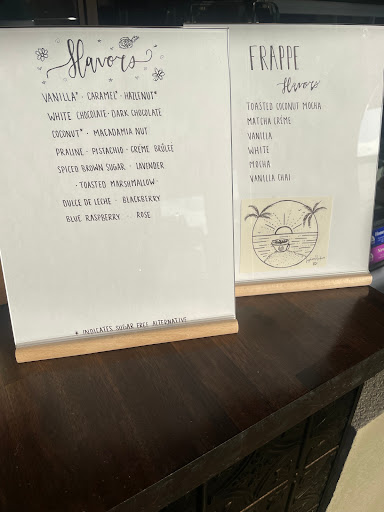 Flavors
VANILLA* · CARAMEL* · HAZELNUT*
WHITE CHOCOLATE · DARK CHOCOLATE
COCONUT* · MACADAMIA NUT
PRALINE · PISTACHIO · CRÈME BRÛLÉE
SPICED BROWN SUGAR · LAVENDER
· TOASTED MARSHMALLOW ·
DULCE DE LECHE · BLACKBERRY
BLUE RASPBERRY · ROSE
* INDICATES SUGAR FREE ALTERNATIVE
FRAPPE
flavors
TOASTED COCONUT MOCHA
MATCHA CRÈME
VANILLA
WHITE
MOCHA
VANILLA CHAI